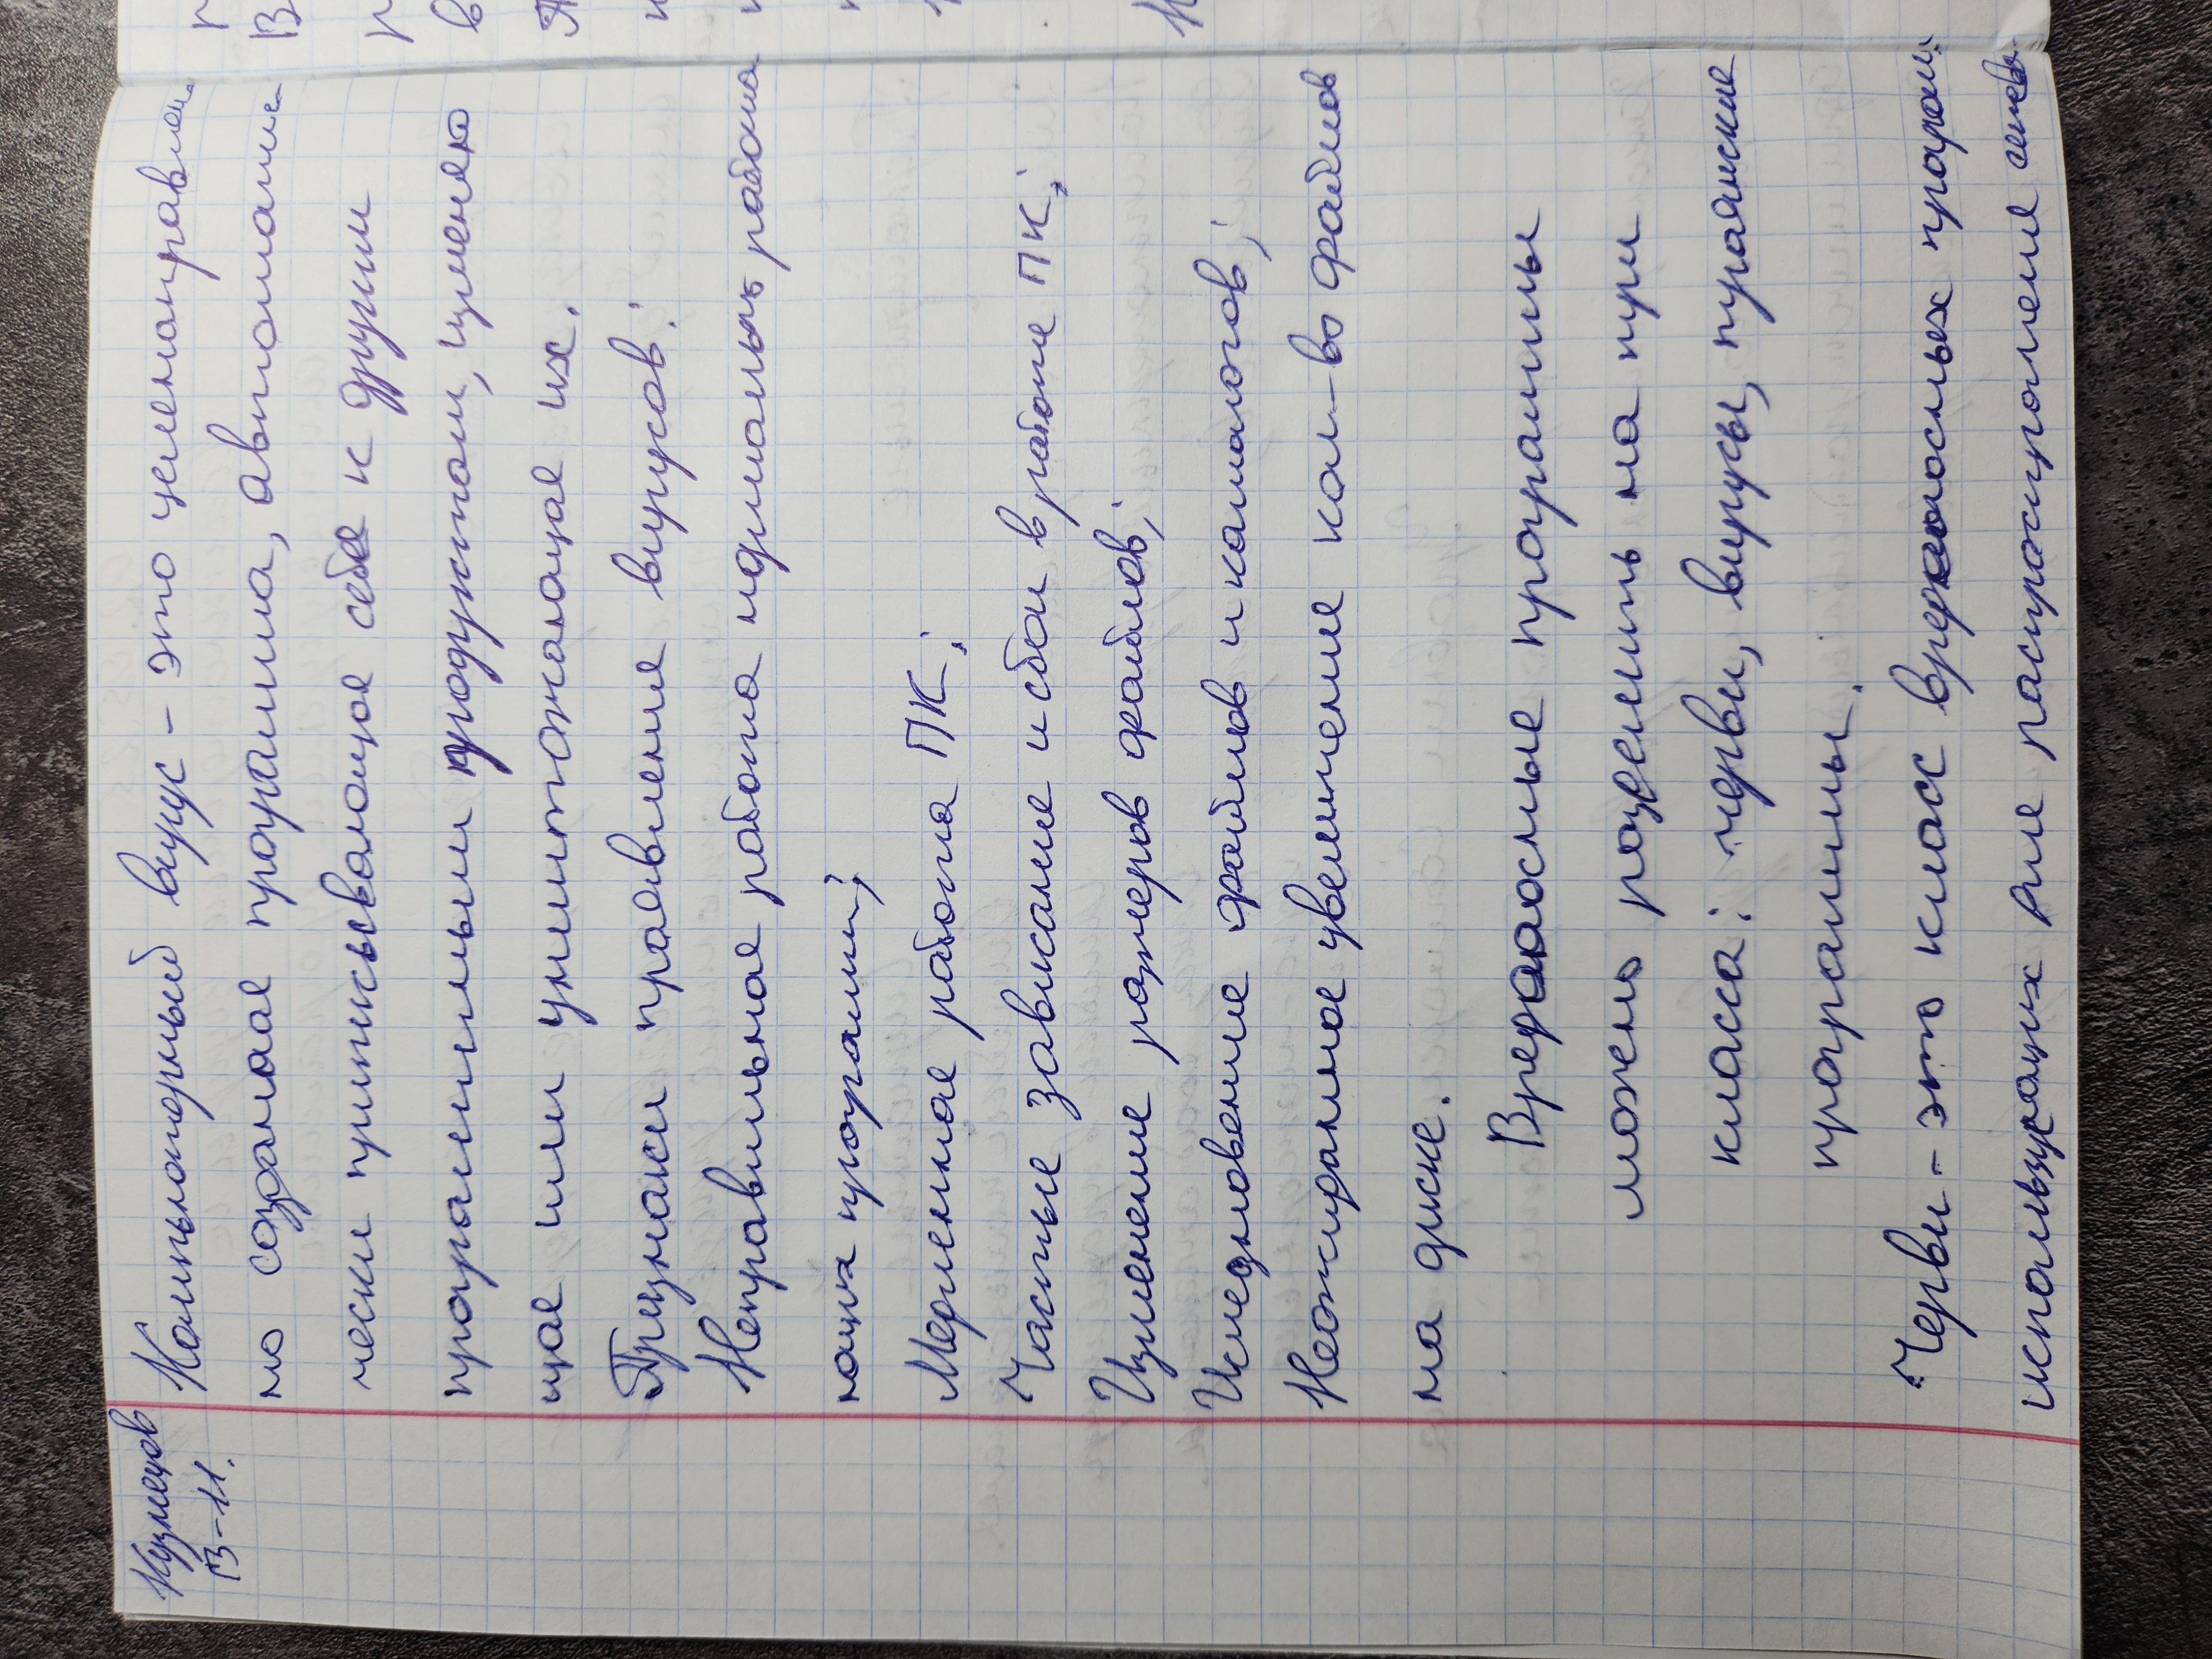 Кузнецов
В-11.
Компьютерный вирус - это целенаправлен.
но созданая программа, автоматиче-
чески приписывающая себя к другим
програмнным продуктам, изменяю
щая или уничтожающая их.
Признаки проявление вирусов:
Неправильная работа нормально работа
ющих программ;
Медленная работа ПК;
Частые зависание и сбои в работе ПК;
Изменение размеров файлов;
Исчедновение файлов и каталогов;
Неожиданное увеличение кол-во файлов
на диске.
Вредоносные программы
можно разделить на три
класса: черви, вирусы, траянские
программы.
Черви - это класс вредоносных програм,
использующих для распространения сетевы